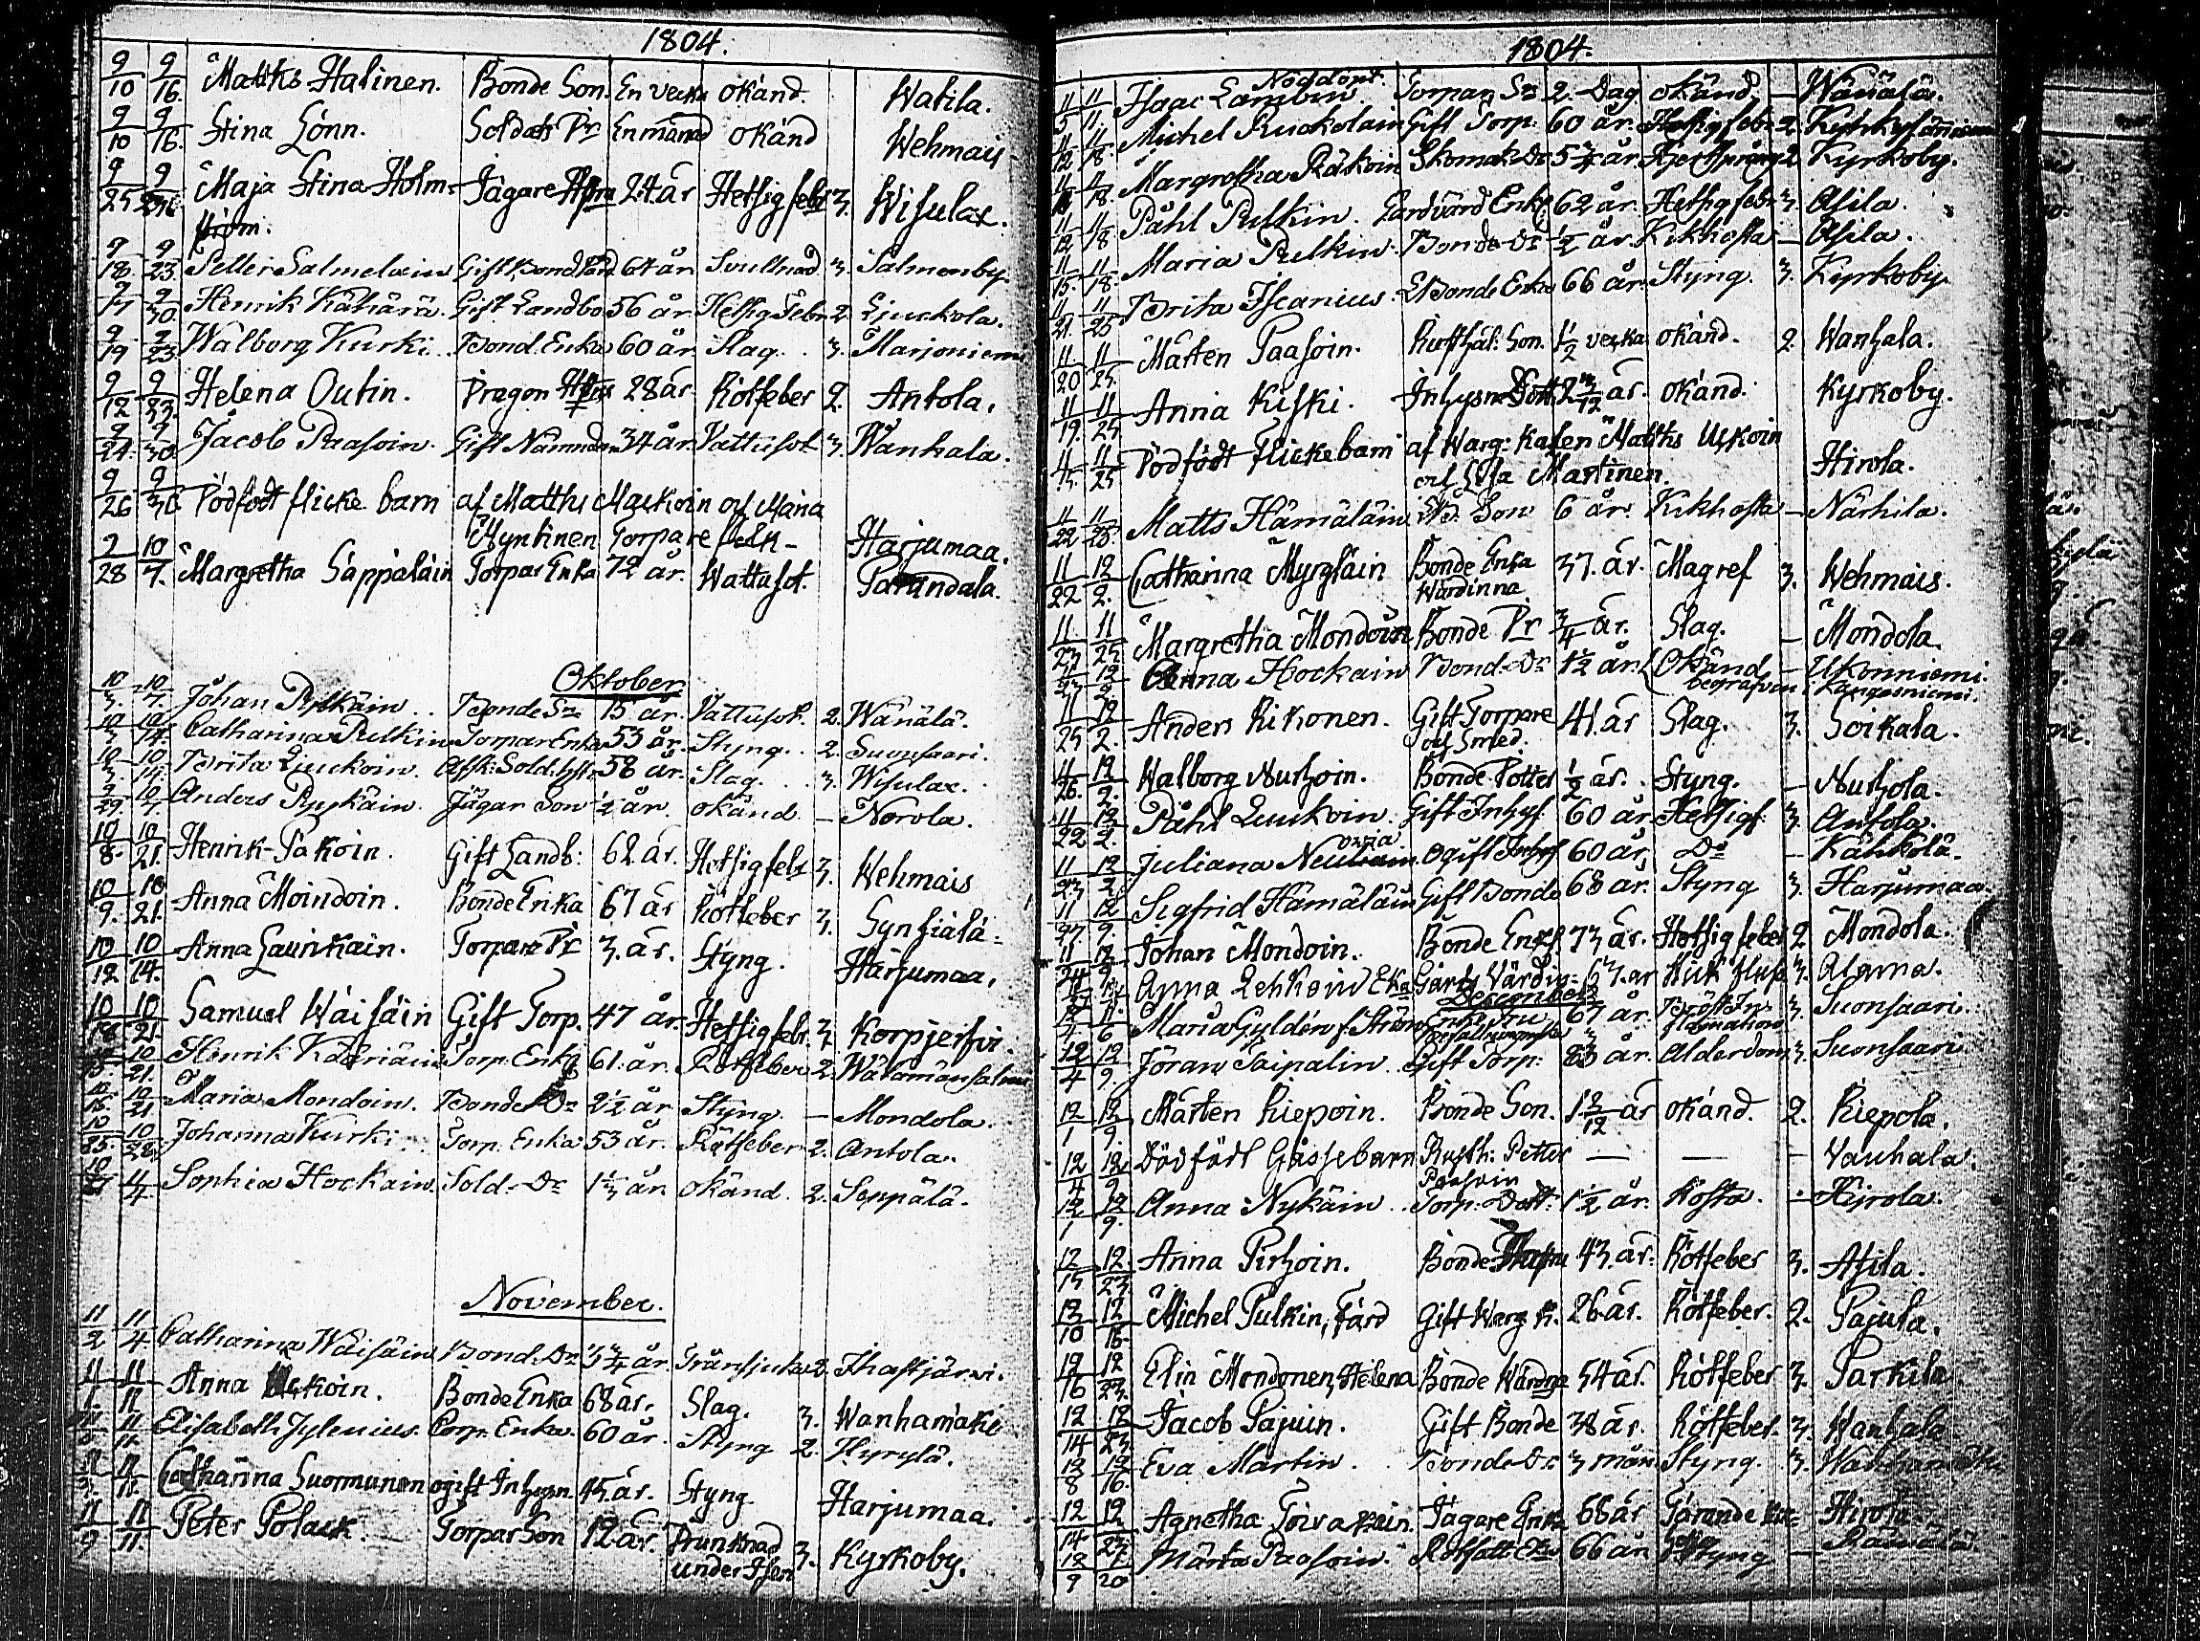 1804.
9/10 9/16. Matths Halinen. Bonde Son. En vecka okänd. Watila.
9/10 9/16. Stina Lönn. Soldats Pr En månad okänd Wehmais
9/25 Maja Stina Holm- Jägare 24 år Hetsig febr 3. Wisulax.
ström.
9/18. 9/23. Petter Salmelain Gift 64 år 3. Salmenby.
9/30. Henrik Kähärä. Gift Landbo 56 år Hetsig Febr 2 Ljuckola.
9/19 9/23. Walborg Kurki. Bond. Enka 60 år Slag. 3. Marjoniemi
9/12 9/23. Helena Outin. Dragon 28 år Rötfeber 2. Antola.
9/30. Jacob Paasoin. Gift Nämndem 34 år Vattusot 3. Wanhala.
9/26 Dödfödt flicke barn af Matths Mackoin och Maria
Myntinen Torpare folk - Harjumaa.
9/28 10/7. Margretha Säppäläin Torpar Enka 72 år. Wattusot. Parandala.
Oktober
10/3. 10/7. Johan Pylkäin. Bonde Sn 15 år. Vattusot. 2. Wänälä.
10/14. Catharina Pulkin Torpar Enka 53 år. Styng. 2. Suonsaari.
10/3. 10/14. Brita Luckoin. Afsk: Sold: 58 år. Slag. 3. Wisulax.
9/29. 10/7. Anders Pynkäin. Jägar Son 1/2 år. okänd. - Norola.
10/8. 10/21. Henrik Pakoin. Gift Landb: 62 år. Hetsig febr 3. Wehmais
10/9. 10/21. Anna Moindoin. Bonde Enka 67 år Rötfeber 3. Synsiälä-
10/12 10/14. Anna Laurikain. Torpare Pr 3. år. Styng. Harjumaa,
10/21. Samuel Wäisäin Gift Torp. 47 år. Hetsig febr. 3. Korpjerfvi.
10/21. Henrik Kääriäin Torp. Enkl 61. år. Rötfeber 2. Watamansalmi
10/21 Maria Mondoin. Bonde Dr 2 1/2 år Styng. - Mondola.
10/28. Johanna Kurki. Torp. Enka 53 år. Rötfeber 2. Antola.
11/4 Sophia Hockain. Sold. Dr 1 1/3 år okänd. 2. Seppälä.
November.
11/2 11/4 Catharina Wäisäin Bond. Dr 3 3/4 år. 2. Ihastjärvi.
11/11 Anna Uckoin. Bonde Enka 68 år. Slag. 3. Wanhamäki
11/11. Elisabeth Jylenius. Corp. Enka. 60 år. Styng 2. Hyrylä.
11/11. Catharina Suormunen ogift Inhysn. 45 år. Styng. Harjumaa.
11/9 11/11. Peter Polack. Torpar Son 12 år. Drunknad 3. Kyrkoby.
under Isen
1804.
Nöddöpt.
11/5 11/11. Isaac Lambin Torpar Sn 2. Dag okänd - Wänälä.
11/12 11/18. Michel Ruckolain Gift Torp. 60 år. Hetsig febr 2.
11/18. Margretha Räkoin Skomak. Dr 5 3/4 år. 2 Kyrkoby.
11/12 11/18 Påhl Pulkin. Enkl. 62 år. Hetsig febr 3. Asila.
11/15. 11/18. Maria Pulkin. Bonde Dr 1/2 år. Kikhosta - Asila.
11/21. 11/25 Brita Iscanius. Bonde Enka 66 år. Styng. 3. Kyrkoby
11/20 11/25. Mårten Paasoin. Rusthål. Son. 1 1/2 vecka okänd. 2 Wanhala.
11/19. 11/25 Anna Kiski. Inhysn Dott. 2 3/12 år. okänd. Kyrkoby.
11/25 Dödfödt flickebarn af Warg: karlen Matths Uckoin
och Ulla Martinen. Hirola.
11/22 11/25. Matts Hämäläin Bd. Son 6 år. Kikhosta - Närhilä.
11/22 12/2. Catharina Myrgläin Bonde Enka 37. år. Magref 3. Wehmais.
Wärdinna
11/23 11/25. Margretha Mondoin Bonde Pr 3/4 år. Slag. - Mondola.
12/2. Anna Hockain Bond. Dr 1 1/2 år. (Okänd - Ukonniemi.
begrafven i Kangasniemi.
11/25 12/2. Anders Rikonen. Gift Torpare 41 år Slag. 3. Soikala.
och Smed.
11/26. 12/2. Walborg Nutzoin. Bonde Dotter 1/2 år. Styng. - Nutzola.
11/22 12/2. Påhl Luukoin. Gift Inhys. 60 år Hetsigf. 3. Antola.
11/23 12/2. Juliana ogift Inhys 60 år, Do - Kähkölä.
11/27. 12/9. Sigfrid Hämäläin Gift Bonde 68 år. Styng 3. Harjumaa.
11/24 12/9. Johan Mondoin. Bonde Enkl 73 år. Hetsig feber 2 Mondola.
Anna Lehkoin Eka Gårds Värdin: 63. år 3. Alama.
December
Maria Gyldén f. Ström 67 år. Bröst In- 3. Suonsaari.
flamation
12/4 12/9. Jöran Taipalin. Gift Torp: 83 år. Ålderdom. 3. Suonsaari
12/1 12/9. Mårten Riepoin. Bonde Son. 1 2/12 år okänd. 2. Riepola.
12/4 12/9 Dödfödt Gåssebarn Rusth. Petter — — - Vanhala.
Paasoin
12/1 12/9. Anna Nykäin. Torp. Dott. 1 1/2 år. Hosta. - Hirola.
12/15 12/23 Anna Pirhoin. Bonde 43. år. Rötfeber 3. Asila.
12/10 12/16. Michel Pulkin, Färd Gift Warg K. 26 år. Rötfeber. 2. Pajula.
12/16 12/23. Elin Mondonen, Helena Bonde Wärdna 54 år. Rötfeber 3. Parkila.
12/14 12/23 Jacob Pajuin. Gift Bonde 38 år. Rötfeber. 3. Wanhala
12/8 12/16. Eva Martin. Bonde Dr 3 mån Styng. 3. Wanhamäki
12/14 12/23 Agnetha Toivakain. Jägare Enka 66 år Tärande - Hirola.
12/9 Märta Paasoin. 66 år Styng —